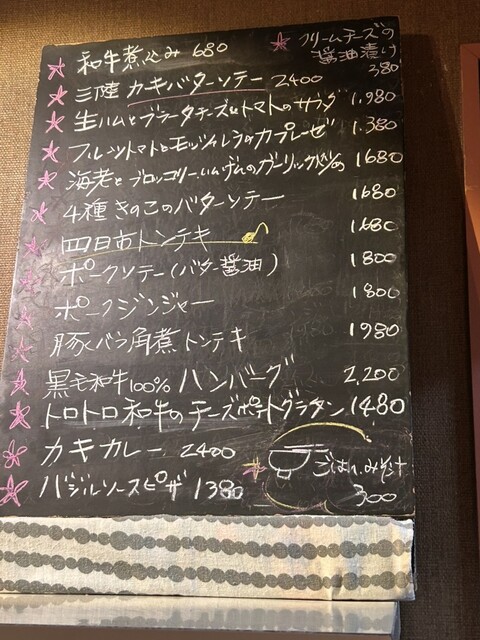 和牛煮込み 680
クリームチーズの
醤油漬け
380
三陸 カキバターソテー 2400
生ハムとブラータチーズとトマトのサラダ 1,980
フルーツトマトとモッツァレラのカプレーゼ 1,380
海老とブロッコリー、いんげんのガーリック炒め 1680
4種きのこのバターソテー 1680
四日市トンテキ 1,680
ポークソテー(バター醤油) 1800
ポークジンジャー 1800
豚バラ角煮トンテキ 1980
黒毛和牛100% ハンバーグ 2,200
トロトロ和牛のチーズポテトグラタン 1480
カキカレー 2400
ごはん、みそ汁
300
バジルソースピザ 1380